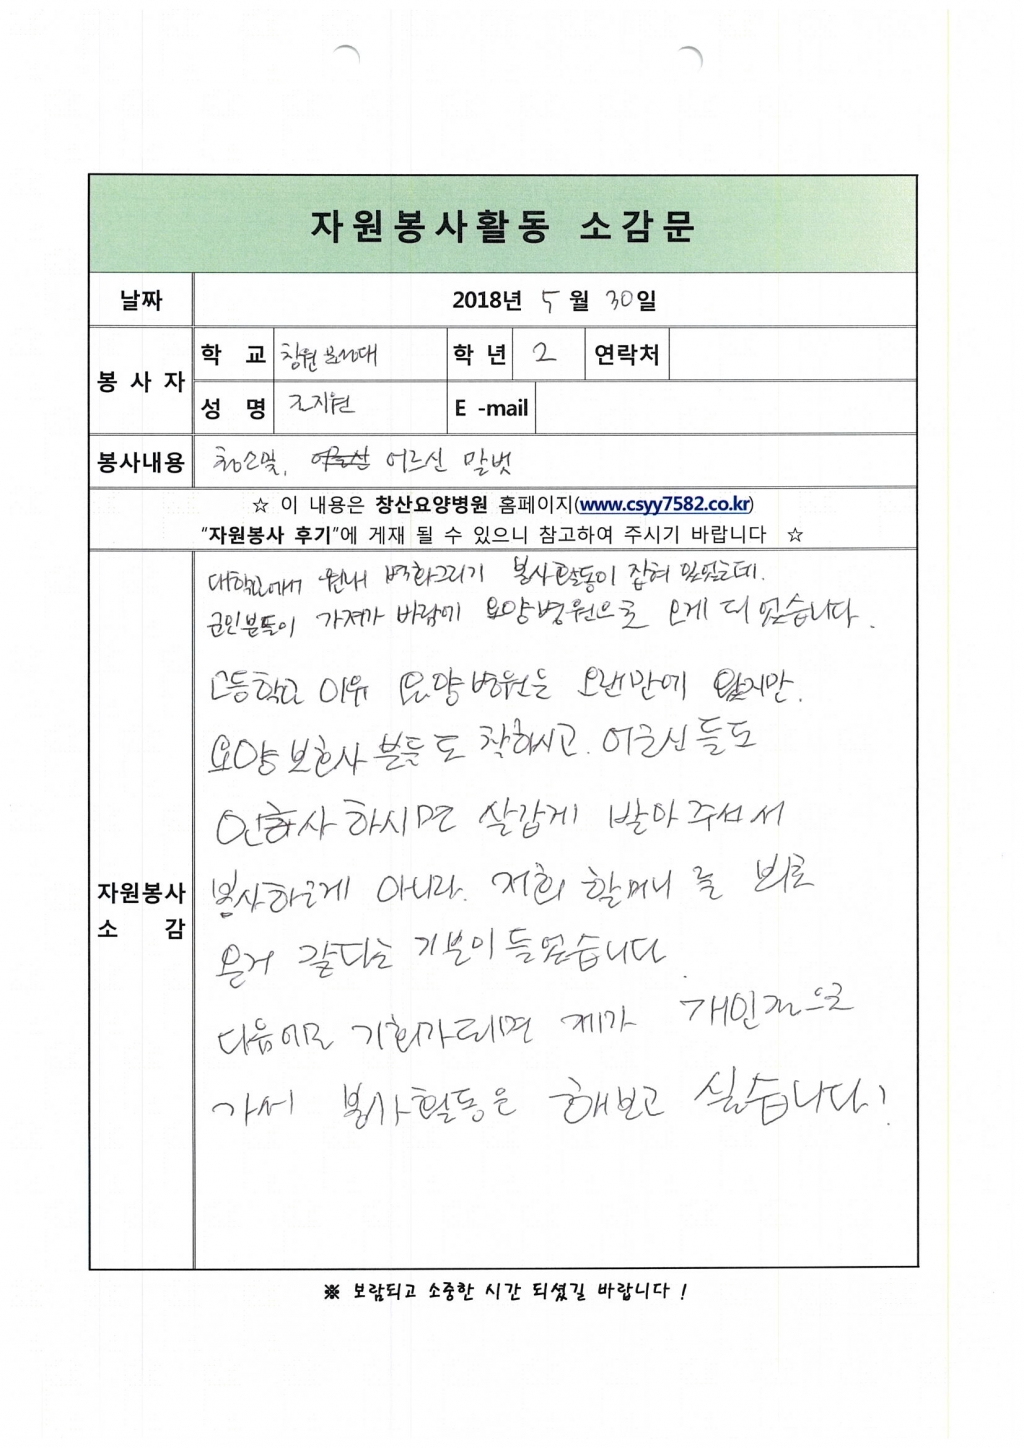 자원봉사활동 소감문
날짜 2018년 5월 30일
봉사자 학 교 창원문성대 학 년 2 연락처
성 명 조지원 E -mail
봉사내용 청소및, 어르신 말벗
☆ 이 내용은 창산요양병원 홈페이지(www.csyy7582.co.kr)
“자원봉사 후기”에 게재 될 수 있으니 참고하여 주시기 바랍니다 ☆
자원봉사 소 감
대학교에서 원래 벽화그리기 봉사활동이 잡혀 있었는데.
군인분들이 가져가 바람에 요양병원으로 오게 되었습니다.
고등학교 이유 요양병원은 오랜만에 왔지만.
요양보호사 분들도 착하시고. 어르신들도
인사하시면 살갑게 받아주셔서
봉사하는게 아니라. 저희 할머니 를 뵈로
온거 같다는 기분이 들었습니다.
다음에도 기회가되면 제가 개인적으로
가서 봉사활동은 해보고 싶습니다!
※ 보람되고 소중한 시간 되셨길 바랍니다 !